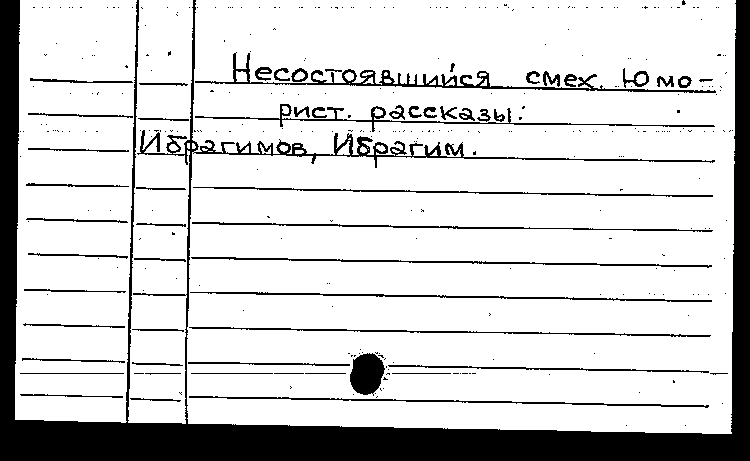 Несостоявшийся смех. Юмо-
рист. рассказы:
Ибрагимов, Ибрагим.